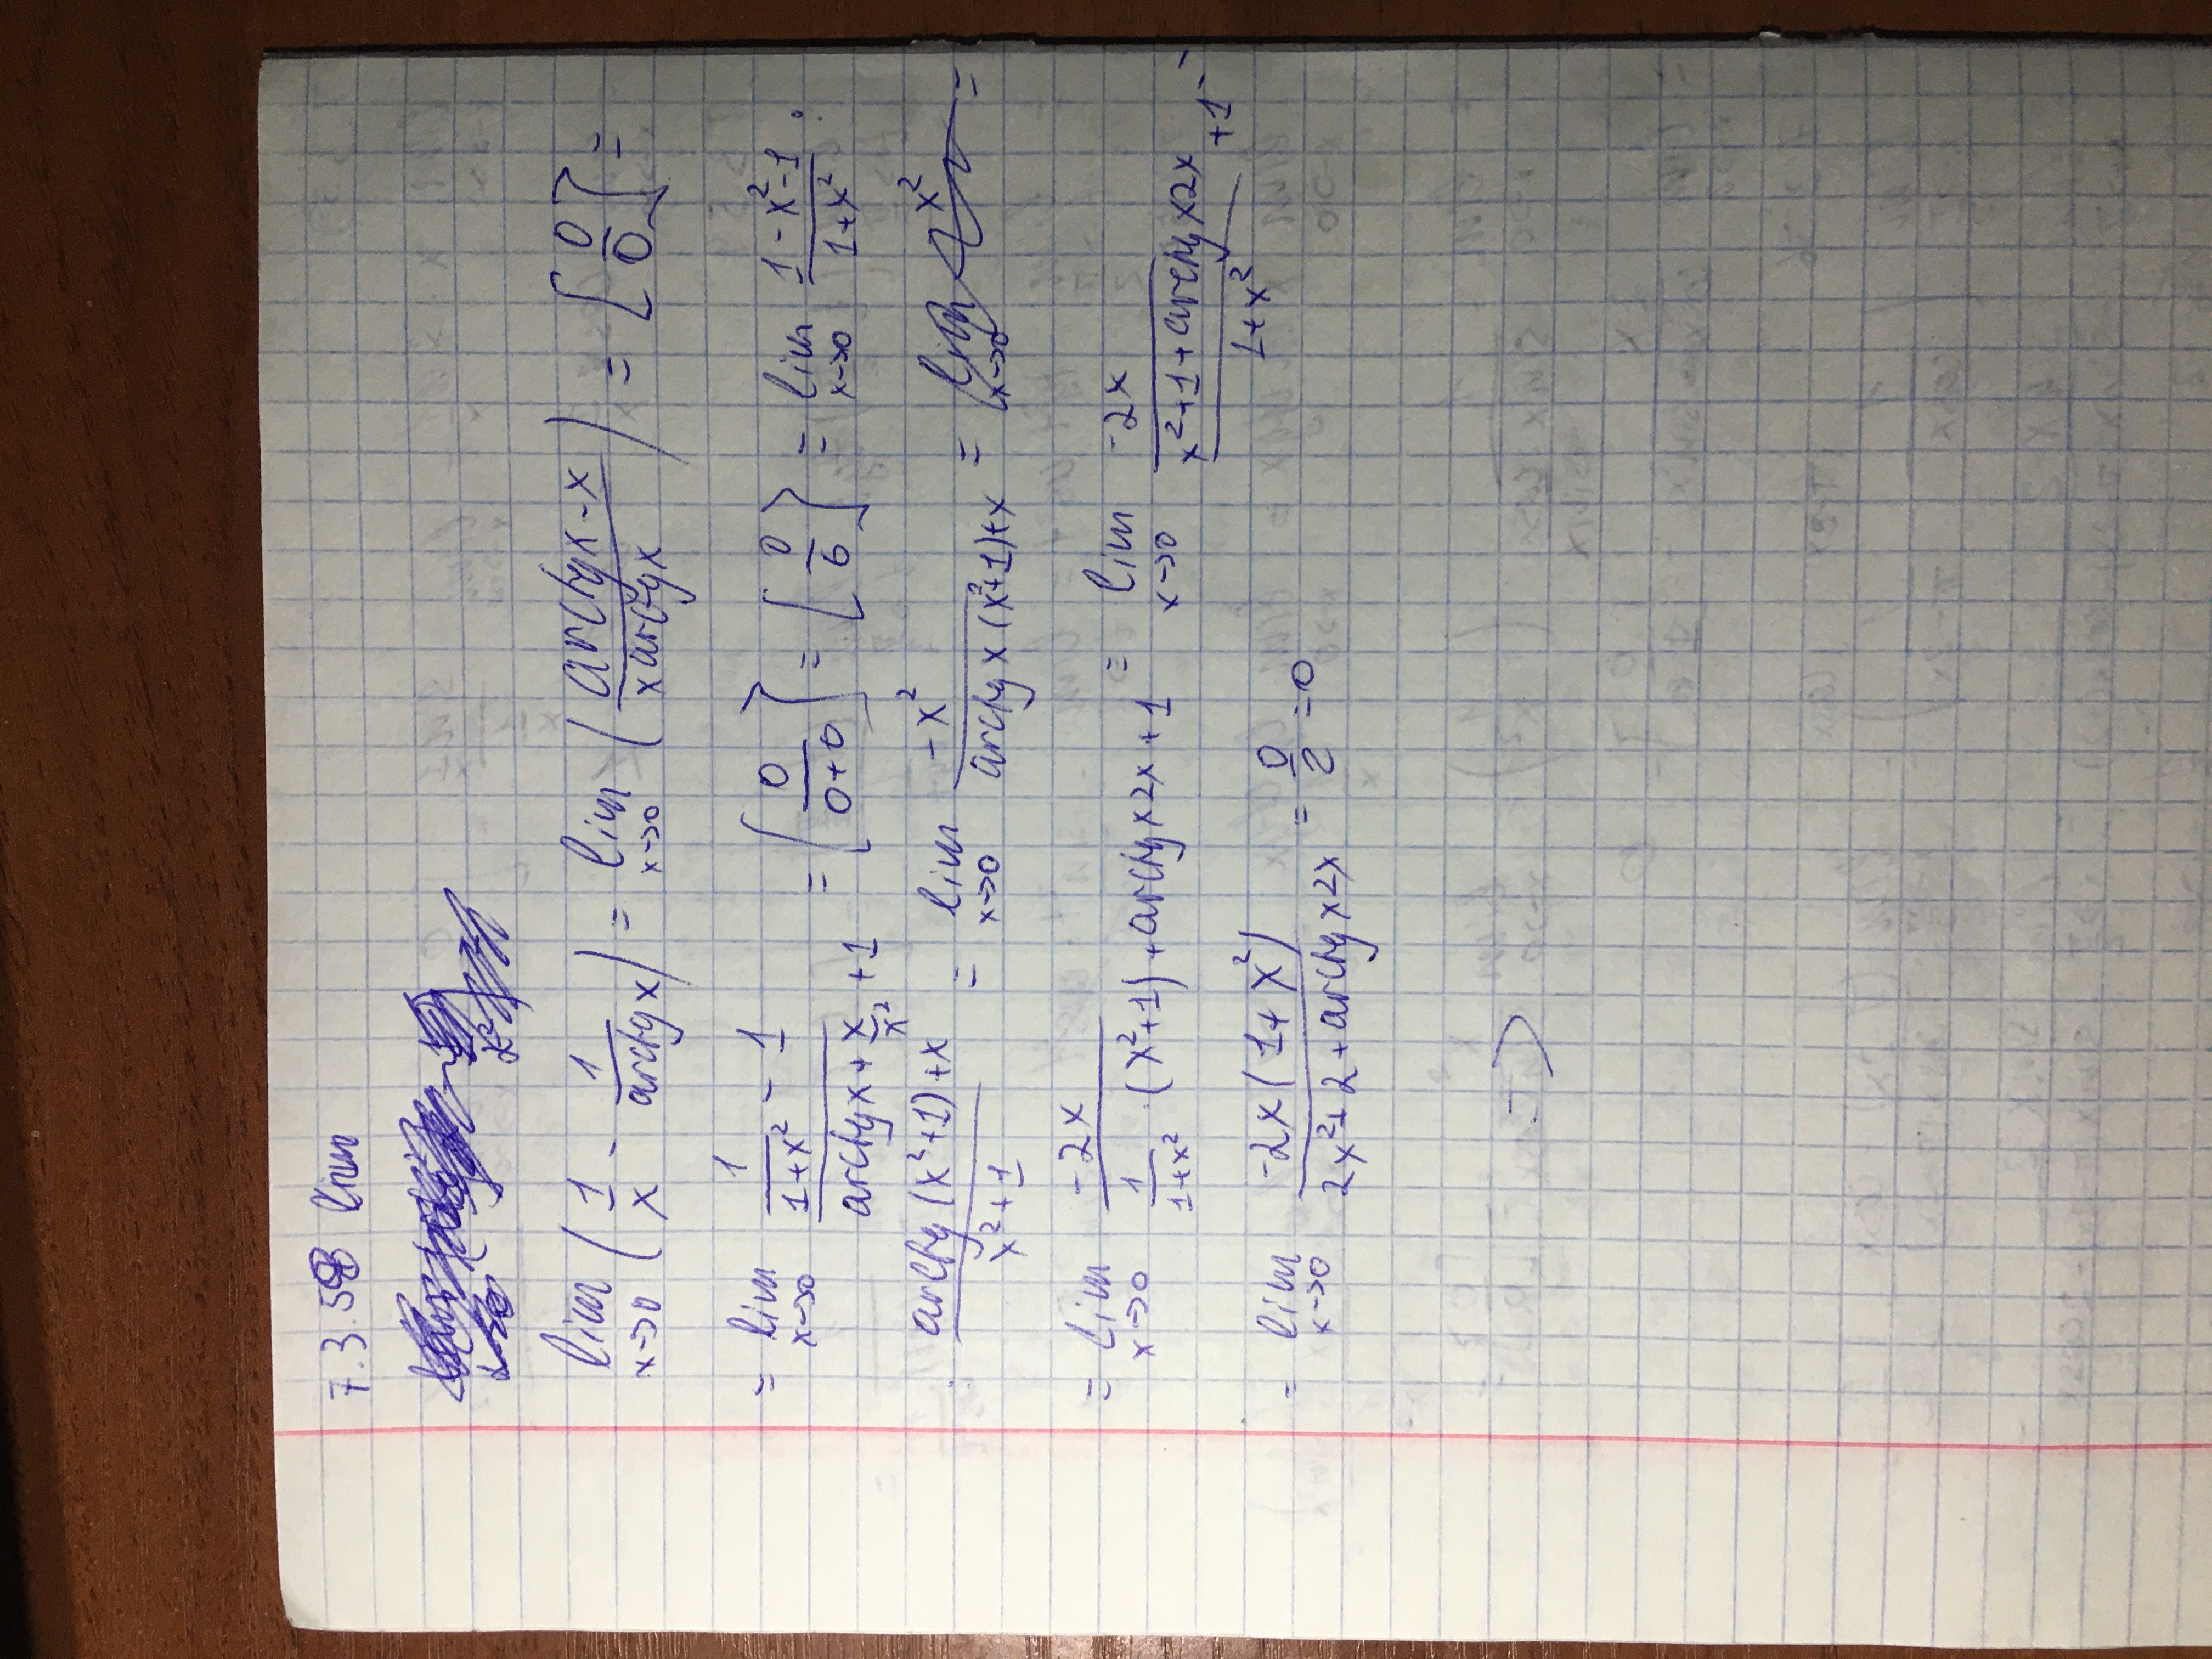 7.3.58 lim
lim x→0 (1/x - 1/arctgx) = lim x→0 (arctgx-x / xarctgx) = [0/0] =
= lim x→0 (1/(1+x²) - 1) / (arctgx + x/x² +1) = [0/0+0] = [0/0] = lim x→0 (1-x²-1)/(1+x²) :
: (arctg(x²+1)+x)/(x²+1) = lim x→0 -x²/(arctgx(x²+1)+x) = lim x→0 x² =
= lim x→0 -2x / (1/(1+x²) · (x²+1) + arctgx2x + 1) = lim x→0 -2x / ((x²+1+arctgx2x)/(1+x²) +1) =
= lim x→0 -2x(1+x²) / (2x²+2+arctgx2x) = 0/2 = 0